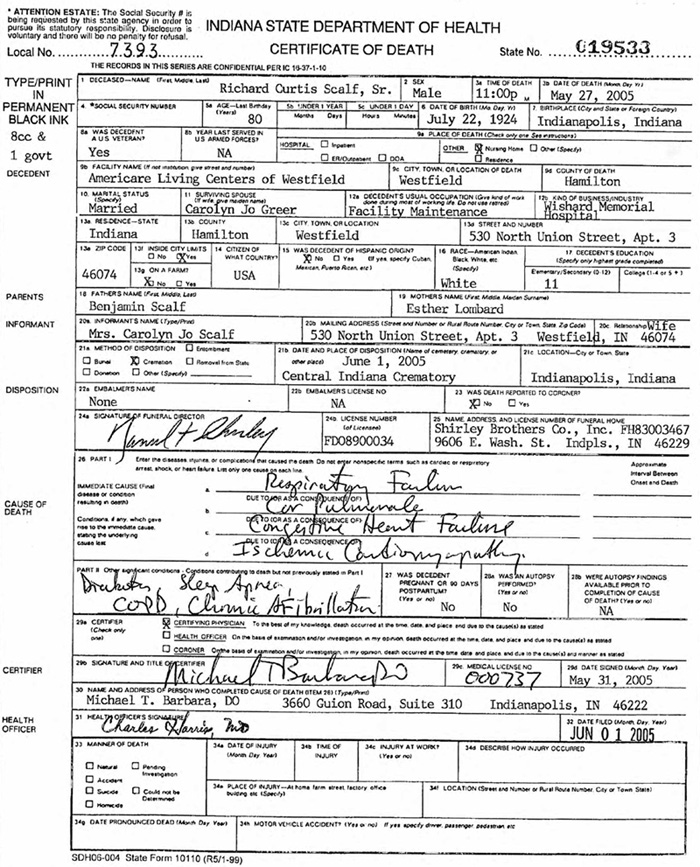 * ATTENTION ESTATE: The Social Security # is
being requested by this state agency in order to
pursue its statutory responsibility. Disclosure is
voluntary and there will be no penalty for refusal.
INDIANA STATE DEPARTMENT OF HEALTH
CERTIFICATE OF DEATH
Local No. 7393
State No. 019533
THE RECORDS IN THIS SERIES ARE CONFIDENTIAL PER IC 16-37-1-10
TYPE/PRINT
IN
PERMANENT
BLACK INK
8cc &
1 govt
DECEDENT
1 DECEASED—NAME (First, Middle, Last)
Richard Curtis Scalf, Sr.
2 SEX
Male
3a TIME OF DEATH
11:00p M
3b DATE OF DEATH (Month, Day, Yr)
May 27, 2005
4. *SOCIAL SECURITY NUMBER
5a AGE—Last Birthday (Years)
80
5b UNDER 1 YEAR
Months Days
5c UNDER 1 DAY
Hours Minutes
6 DATE OF BIRTH (Mo, Day, Yr)
July 22, 1924
7 BIRTHPLACE (City and State or Foreign Country)
Indianapolis, Indiana
8a WAS DECEDENT A U.S. VETERAN?
Yes
8b YEAR LAST SERVED IN U.S. ARMED FORCES?
NA
9a PLACE OF DEATH (Check only one. See instructions)
HOSPITAL Inpatient
ER/Outpatient DOA
OTHER X Nursing Home Other (Specify)
Residence
9b FACILITY NAME (If not institution give street and number)
Americare Living Centers of Westfield
9c CITY, TOWN, OR LOCATION OF DEATH
Westfield
9d COUNTY OF DEATH
Hamilton
10. MARITAL STATUS (Specify)
Married
11 SURVIVING SPOUSE (If wife, give maiden name)
Carolyn Jo Greer
12a DECEDENT'S USUAL OCCUPATION (Give kind of work done during most of working life. Do not use retired)
Facility Maintenance
12b KIND OF BUSINESS/INDUSTRY
Wishard Memorial
Hospital
13a RESIDENCE—STATE
Indiana
13b COUNTY
Hamilton
13c CITY, TOWN, OR LOCATION
Westfield
13d STREET AND NUMBER
530 North Union Street, Apt. 3
13e ZIP CODE
46074
13f INSIDE CITY LIMITS
No X Yes
13g ON A FARM?
X No Yes
14 CITIZEN OF WHAT COUNTRY?
USA
15 WAS DECEDENT OF HISPANIC ORIGIN?
X No Yes (If yes, specify Cuban, Mexican, Puerto Rican, etc.)
16 RACE—American Indian, Black, White, etc. (Specify)
White
17 DECEDENT'S EDUCATION
(Specify only highest grade completed)
Elementary/Secondary (0-12) College (1-4 or 5+)
11
PARENTS
18 FATHER'S NAME (First, Middle, Last)
Benjamin Scalf
19 MOTHER'S NAME (First, Middle, Maiden Surname)
Esther Lombard
INFORMANT
20a INFORMANT'S NAME (Type/Print)
Mrs. Carolyn Jo Scalf
20b MAILING ADDRESS (Street and Number or Rural Route Number, City or Town, State, Zip Code)
530 North Union Street, Apt. 3 Westfield, IN 46074
20c Relationship
Wife
DISPOSITION
21a METHOD OF DISPOSITION Entombment
Burial X Cremation Removal from State
Donation Other (Specify)
21b DATE AND PLACE OF DISPOSITION (Name of cemetery, crematory, or other place)
June 1, 2005
Central Indiana Crematory
21c LOCATION—City or Town, State
Indianapolis, Indiana
22a EMBALMER'S NAME
None
22b EMBALMER'S LICENSE NO
NA
23 WAS DEATH REPORTED TO CORONER?
X No Yes
24a SIGNATURE OF FUNERAL DIRECTOR
24b LICENSE NUMBER (of Licensee)
FD08900034
25 NAME, ADDRESS, AND LICENSE NUMBER OF FUNERAL HOME
Shirley Brothers Co., Inc. FH83003467
9606 E. Wash. St. Indpls., IN 46229
CAUSE OF
DEATH
26 PART I Enter the diseases, injuries, or complications that caused the death. Do not enter nonspecific terms, such as cardiac or respiratory
arrest, shock, or heart failure. List only one cause on each line.
Approximate
Interval Between
Onset and Death
IMMEDIATE CAUSE (Final
disease or condition
resulting in death)
a. Respiratory Failure
DUE TO (OR AS A CONSEQUENCE OF)
b. Cor Pulmonale
Conditions, if any, which gave
rise to the immediate cause,
stating the underlying
cause last
DUE TO (OR AS A CONSEQUENCE OF)
c. Congestive Heart Failure
DUE TO (OR AS A CONSEQUENCE OF)
d Ischemic Cardiomyopathy
PART II Other significant conditions - Conditions contributing to death but not previously stated in Part I
Diabetes, Sleep Apnea,
COPD, Chronic A Fibrillation
27 WAS DECEDENT PREGNANT OR 90 DAYS POSTPARTUM? (Yes or no)
No
28a WAS AN AUTOPSY PERFORMED? (Yes or no)
No
28b WERE AUTOPSY FINDINGS AVAILABLE PRIOR TO COMPLETION OF CAUSE OF DEATH? (Yes or no)
NA
CERTIFIER
29a CERTIFIER
(Check only one)
X CERTIFYING PHYSICIAN To the best of my knowledge, death occurred at the time, date, and place, and due to the cause(s) as stated
HEALTH OFFICER On the basis of examination and/or investigation, in my opinion, death occurred at the time, date, and place, and due to the cause(s) as stated
CORONER On the basis of examination and/or investigation, in my opinion, death occurred at the time, date, and place, and due to the cause(s) and manner as stated
29b SIGNATURE AND TITLE OF CERTIFIER
Michael T Barbara DO
29c MEDICAL LICENSE NO
000737
29d DATE SIGNED (Month, Day, Year)
May 31, 2005
30 NAME AND ADDRESS OF PERSON WHO COMPLETED CAUSE OF DEATH (ITEM 26) (Type/Print)
Michael T. Barbara, DO 3660 Guion Road, Suite 310 Indianapolis, IN 46222
HEALTH
OFFICER
31 HEALTH OFFICER'S SIGNATURE
Charles Harris, MD
32 DATE FILED (Month, Day, Year)
JUN 01 2005
33 MANNER OF DEATH
Natural Pending Investigation
Accident
Suicide Could not be Determined
Homicide
34a DATE OF INJURY (Month, Day, Year)
34b TIME OF INJURY
34c INJURY AT WORK? (Yes or no)
34d DESCRIBE HOW INJURY OCCURRED
34e PLACE OF INJURY—At home, farm, street, factory, office building, etc (Specify)
34f LOCATION (Street and Number or Rural Route Number, City or Town, State)
34g DATE PRONOUNCED DEAD (Month, Day, Year)
34h MOTOR VEHICLE ACCIDENT? (Yes or no) If yes, specify driver, passenger, pedestrian, etc
SDH06-004 State Form 10110 (R5/1-99)